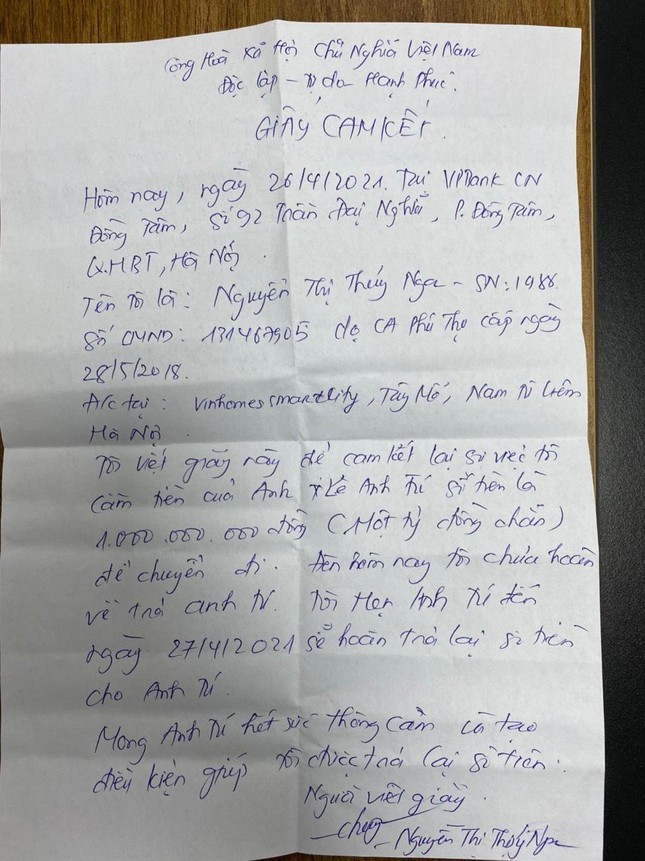 Cộng Hoà Xã Hội Chủ Nghĩa Việt Nam
Độc lập - Tự do Hạnh Phúc.
GIẤY CAM KẾT.
Hôm nay, ngày 26/4/2021. Tại VPBank CN
Đồng Tâm, số 92 Trần Đại Nghĩa, P. Đồng Tâm,
Q.HBT, Hà Nội.
Tên tôi là: Nguyễn Thị Thúy Nga - SN: 1986.
Số CMND: 131467905 do CA Phú Thọ cấp ngày
28/5/2018.
Đ/c tại: Vinhomes smart City, Tây Mỗ, Nam Từ Liêm
Hà Nội.
Tôi viết giấy này để cam kết lại sự việc tôi
cầm tiền của Anh Lê Anh Tú số tiền là
1.000.000.000 đồng (Một tỷ đồng chẵn)
để chuyển đi. Đến hôm nay tôi chưa hoàn
về trả anh Tú. Tôi Hẹn Anh Tú đến
ngày 27/4/2021 sẽ hoàn trả lại số tiền
cho Anh Tú.
Mong Anh Tú hết sức thông cảm và tạo
điều kiện giúp tôi được trả lại số tiền.
Người viết giấy
Nguyễn Thị Thúy Nga